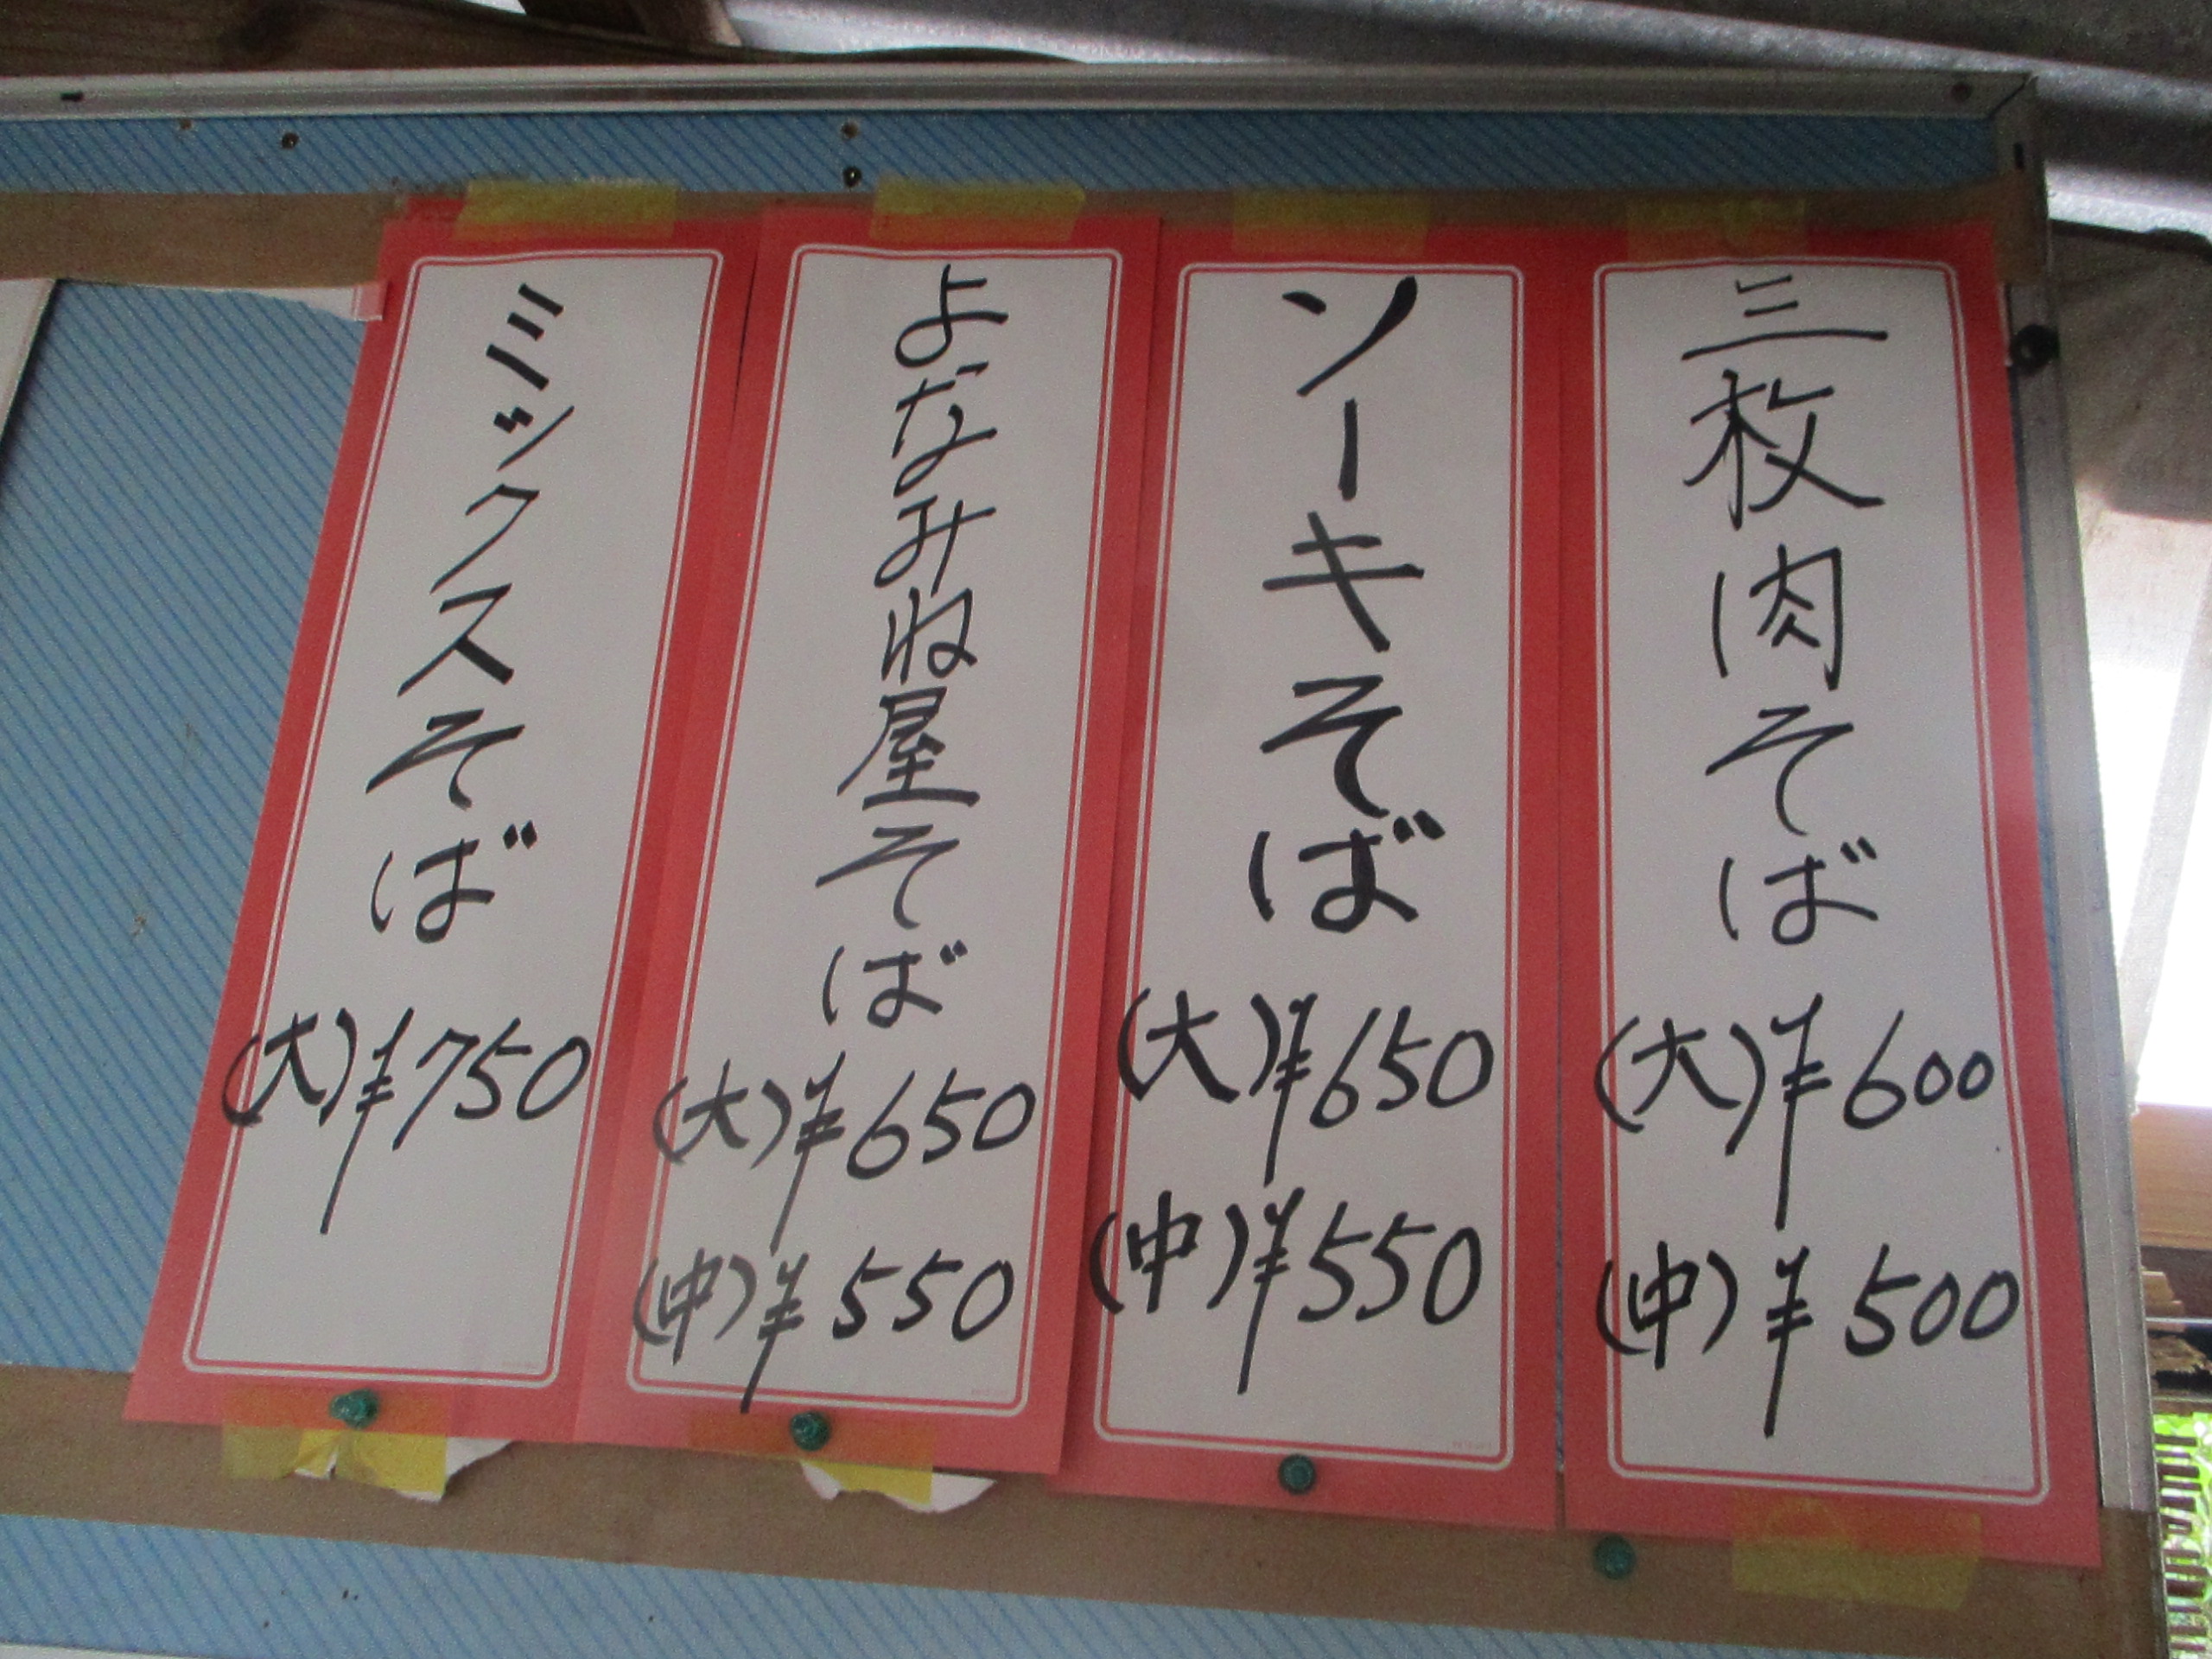 三枚肉そば
(大)¥600
(中)¥500
ソーキそば
(大)¥650
(中)¥550
よなみね屋そば
(大)¥650
(中)¥550
ミックスそば
(大)¥750